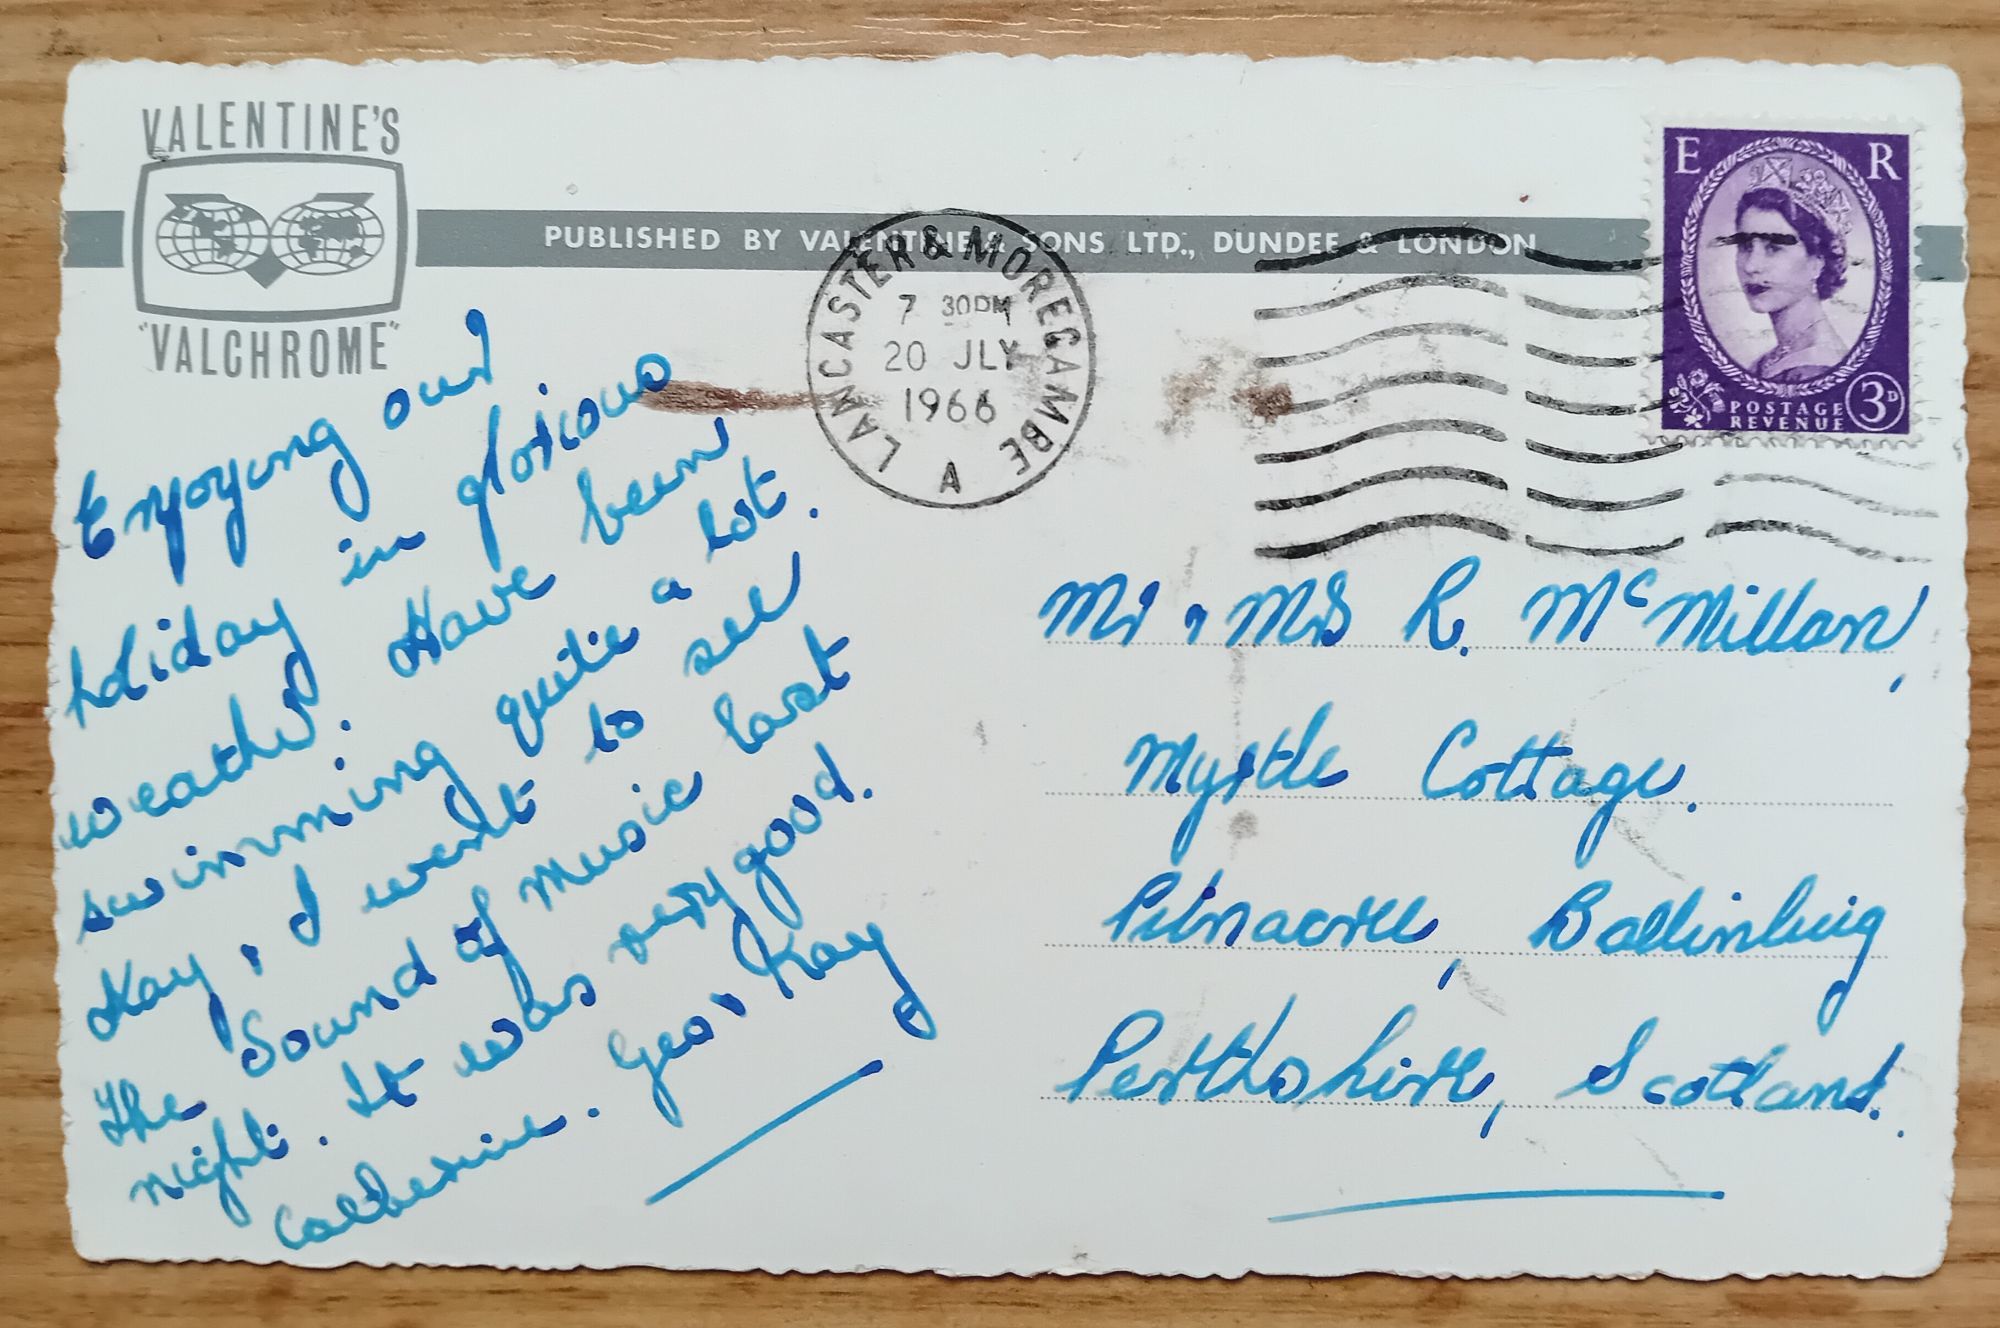 VALENTINE'S
"VALCHROME"
PUBLISHED BY VALENTINE & SONS LTD., DUNDEE & LONDON
LANCASTER & MORECAMBE
7 30PM
20 JLY
1966
A
E R
POSTAGE
REVENUE
3D
Enjoying our
holiday in glorious
weather. Have been
swimming quite a lot.
Kay, & I went to see
The Sound of Music last
night. It was very good.
Catherine. Geo & Kay
Mr & Mrs R. McMillan,
Myrtle Cottage.
Pitnacree, Ballinluig
Perthshire, Scotland.